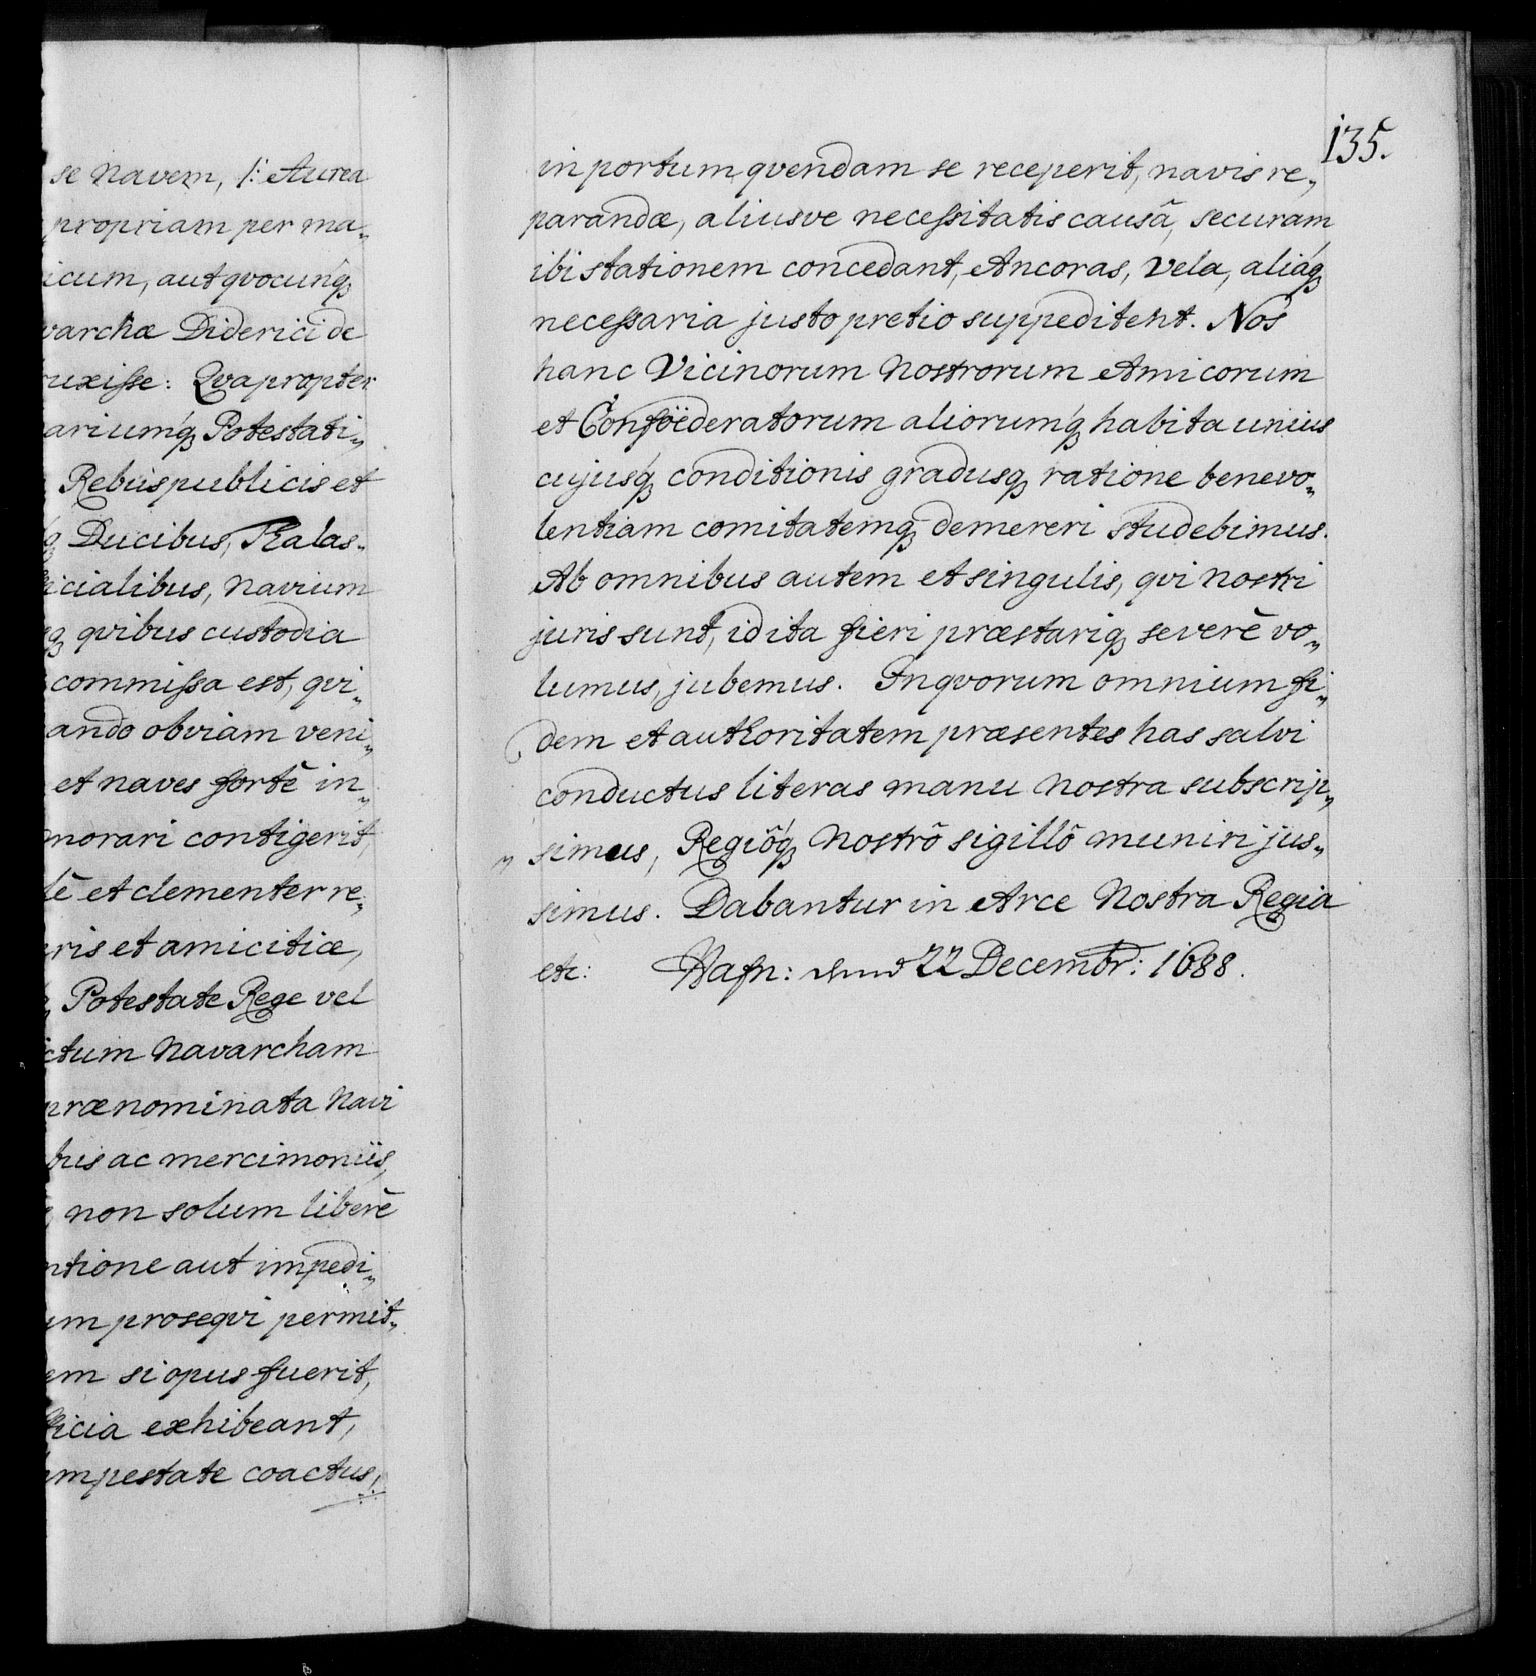 se navem, /: Aurea
propriam per ma„
icum, aut qvocunq́ꝫ
varchæ Diderici de
uxiſse: Qvapropter
ariumq́ꝫ Potestati„
Rebuspublicis et
Ducibus, Thalas„
icialibus, Navium
qꝫ qvibus custodia
commiſsa est, qvi„
ando obviam veni„
et naves fortê in„
morari contigerit,
lê et clementer re„
ris et amicitiæ,
Potestate Rege vel
ctum Navarcham
prænominata Navi
bus ac mercimoniis,
non solum liberê
ntione aut impedi„
um proseqvi permit„
em si opus fuerit,
ficia exhibeant,
empestate coactus,
135.
in portum qvendam se receperit, navis re„
parandæ, aliusve neceſsitatis causâ, securam
ibi stationem concedant, Ancoras, Vela, aliaq́ꝫ
neceſsaria justo pretio suppeditent. Nos
hanc Vicinorum Nostrorum Amicorum
et Confœderatorum aliorumq́ꝫ habita unius
cujusq́ꝫ conditionis gradusqꝫ ratione benevo„
lentiam comitatemqꝫ demereri studebimus.
Ab omnibus autem et singulis, qvi nostri
juris sunt, id ita fieri præstariqꝫ severê vo„
lumus, jubemus. In qvorum omnium fi„
dem et authoritatem præsentes has salvi
conductus literas manu Nostra subscrip„
„simus, Regiôq́ꝫ Nostrô sigillô muniri jus„
simus. Dabantur in Arce Nostra Regia
etc: Hafn: 22 Decembr: 1688.